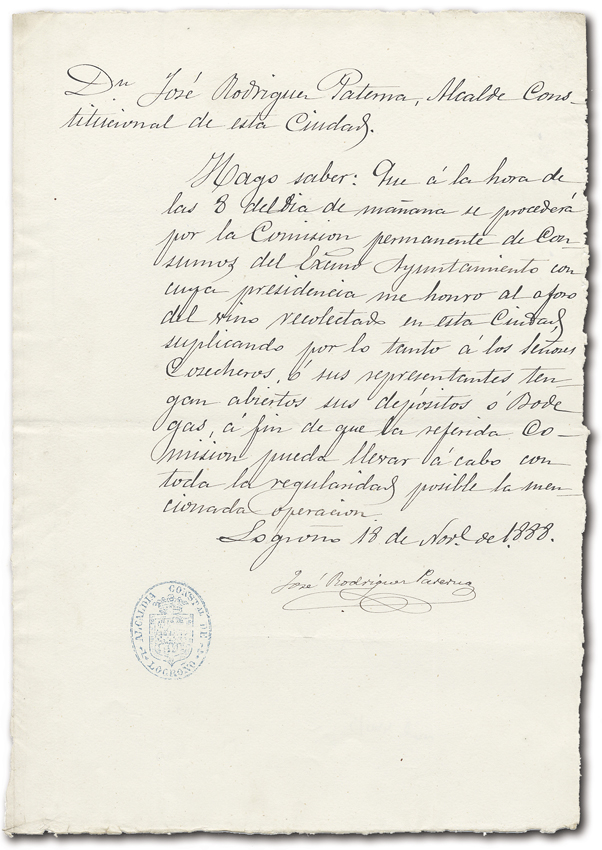 Dn José Rodriguez Paterna, Alcalde Cons-
titucional de esta Ciudad.
Hago saber: Que á la hora de
las 8 del dia de mañana se procederá
por la Comision permanente de Con-
sumos del Excmo Ayuntamiento con
cuya presidencia me honro al aforo
del vino recolectado en esta Ciudad,
suplicando por lo tanto á los Señores
Cosecheros, ó sus representantes ten-
gan abiertos sus depósitos ó Bode
gas, á fin de que la referida Co-
mision pueda llevar á cabo con
toda la regularidad posible la men-
cionada operacion
Logroño 18 de Novl. de 1888.
José Rodriguez Paterna
ALCALDIA CONSTAL DE
LOGROÑO